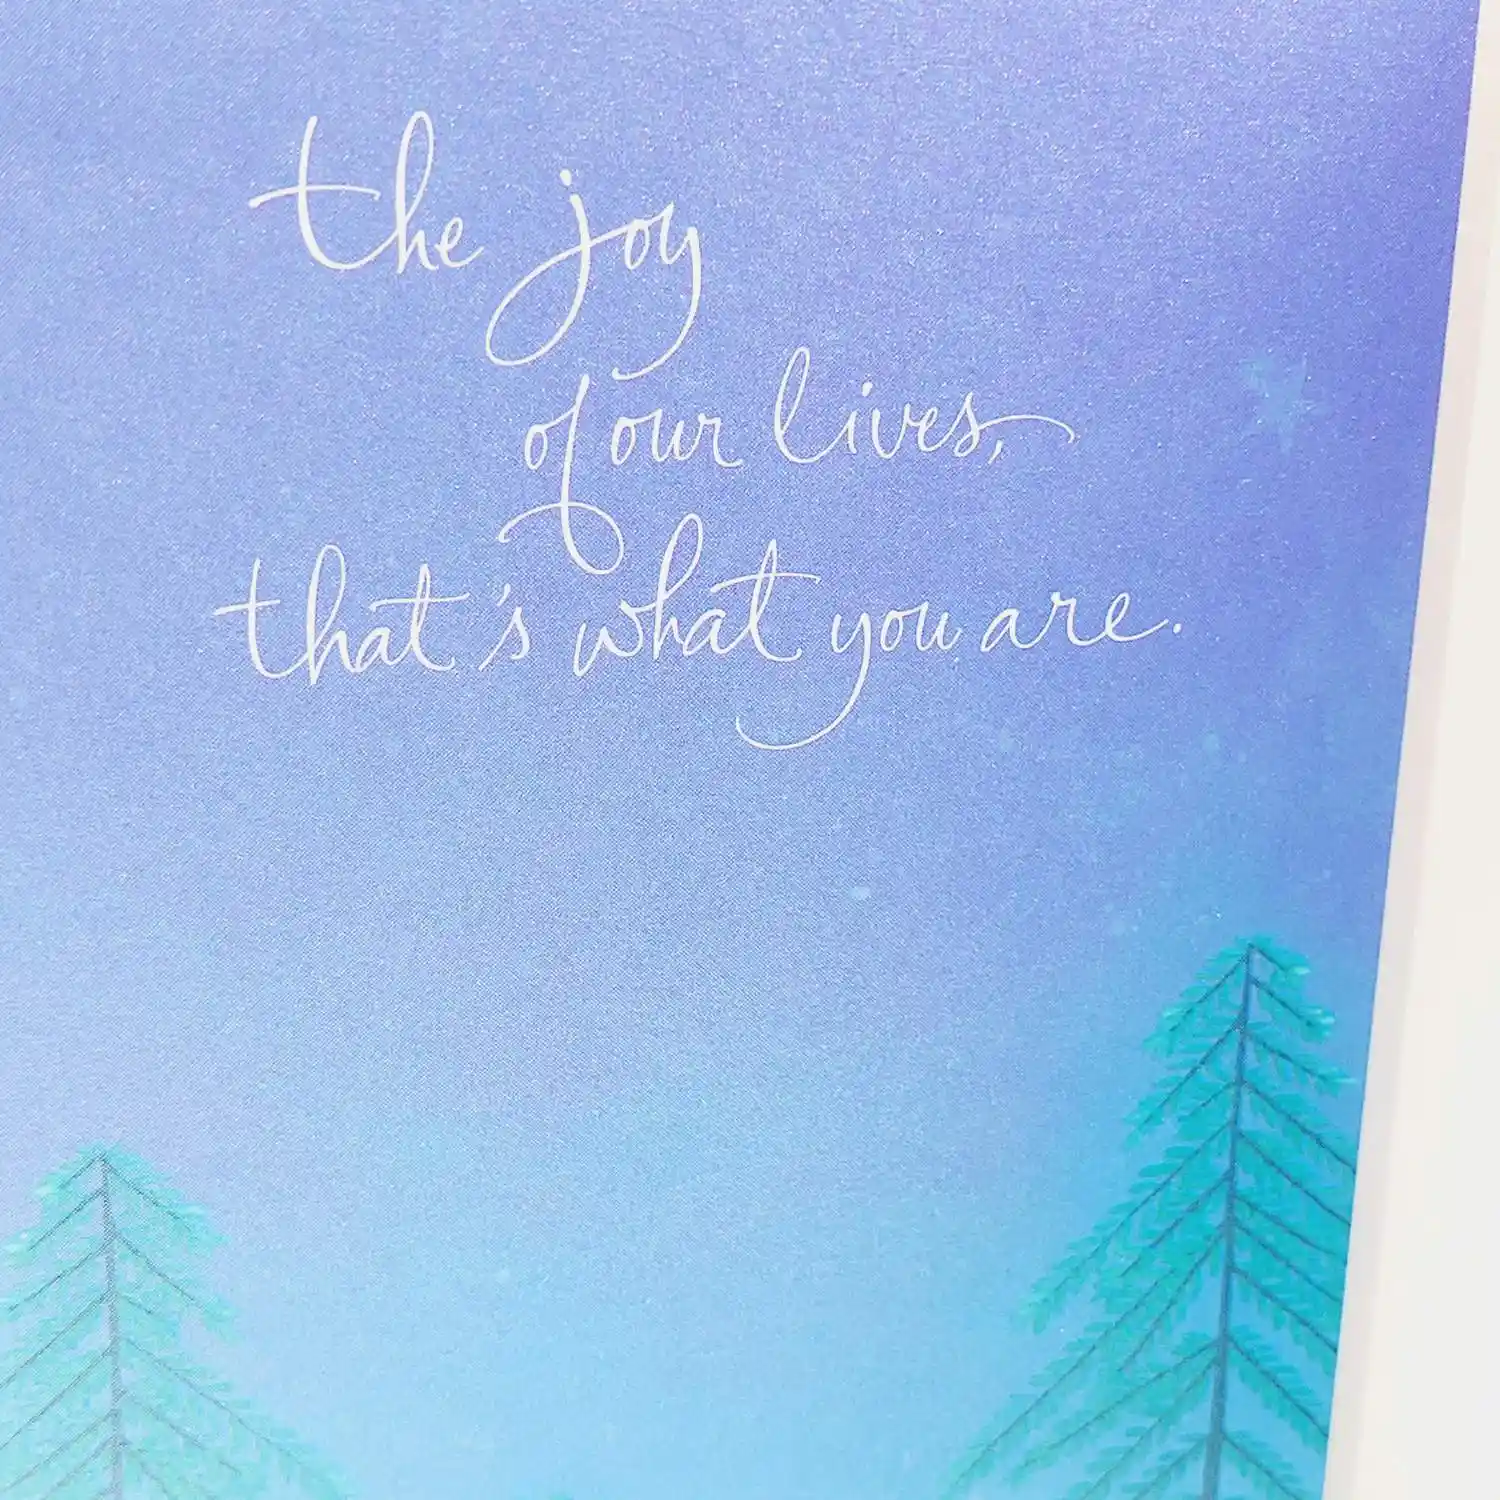 the joy
of our lives,
that's what you are.